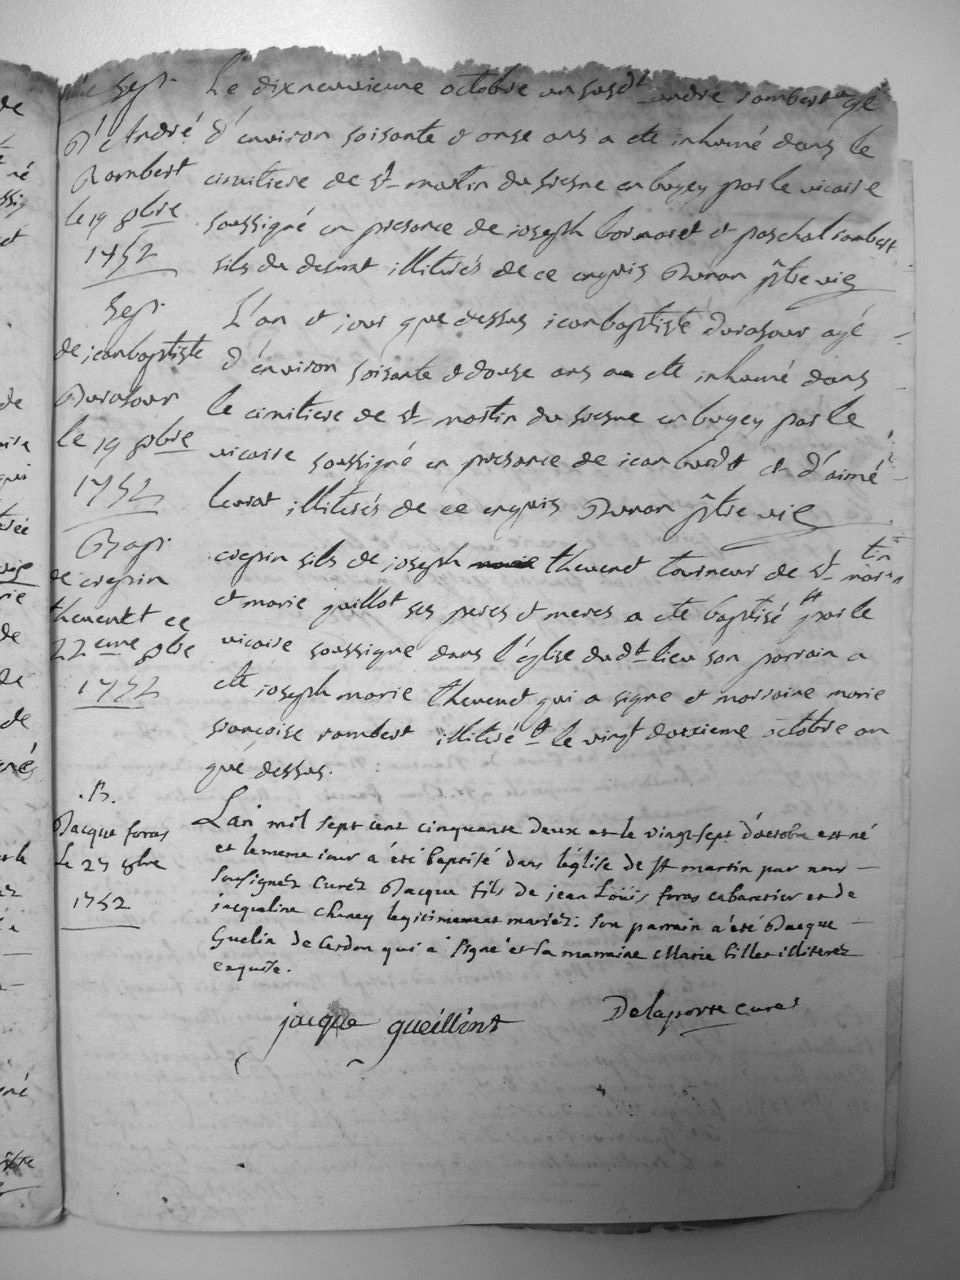 Sepr
D'André
Rambert
le 19 8bre
1752
Le dixneuvieme octobre an susdt andré rambert agé
d'environ soisante & onse ans a ete inhumé dans le
cimitiere de st martin du fresne en bugey par le vicaire
soussigné en presance de joseph et paschal rambert
fils du defunt illiterés de ce enquis Runon ptre vic
Sepr
de jeanbaptiste
Durafour
le 19 8bre
1752
L'an et jour que dessus jeanbaptiste durafour agé
d'environ soisante & douse ans a ete inhumé dans
le cimitiere de st martin du fresne en bugey par le
vicaire soussigné en presance de jean et d'aimé
illiterés de ce enquis Runon ptre vic
Bapt
de crepin
thevenet ce
22eme 8bre
1752
crepin fils de joseph thevenet tourneur de st martin
et marie guillot ses peres et meres a ete baptisé par le
vicaire soussigné dans l'église dudt lieu son parrain a
ete joseph marie thevenet qui a signe et marraine marie
françoise rambert illiterée le vingt deuxieme octobre an
que dessus.
.B.
Jacque foras
Le 27 8bre
1752
L'an mil sept cent cinquante deux et le vingt sept d'octobre est né
et le meme jour a été baptisé dans l'église de st martin par nous
soussignez curez Jacque fils de jean Loüis foras cabaretier et de
jacqueline legitimement mariez. son parrain a été Jacque
Guelin de Cerdon qui a signé et la marraine Marie billet illiterez
enquise.
jacque gueillint
Delaporte curé